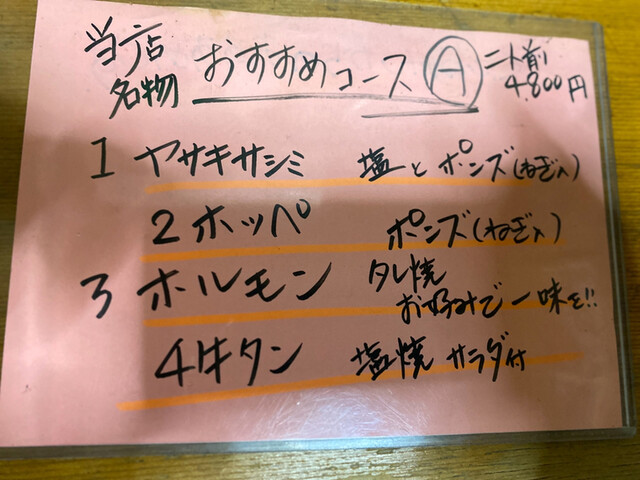 当店名物 おすすめコース Ⓐ 二人前 4.800円
1 ヤサキサシミ 塩とポンズ(ねぎ入)
2 ホッペ ポンズ(ねぎ入)
3 ホルモン タレ焼 お好みで一味を!!
4 牛タン 塩焼 サラダ付